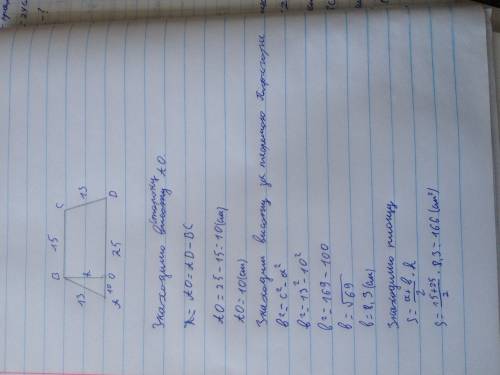 B 15 C
13 h 13
A 10 O 25 D
Знаходимо сторону AO
h = AO = AD - BC
AO = 25 - 15 = 10 (см)
AO = 10 (см)
Знаходим висоту за теоремою Піфагора
b² = c² - a²
b² = 13² - 10²
b² = 169 - 100
b = √69
b = 8,3 (см)
Знаходимо площу
S = a+b/2 · h
S = 15+25/2 · 8,3 = 166 (см²)